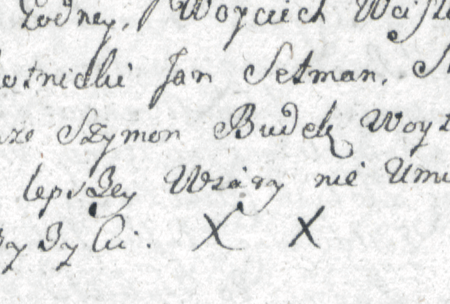 żodney, Wojciech Weisł
otnicki Jan Setman, S
rze Szymon Budek Woyt
lepszey Wiáry nie Umi
yżyli. X X